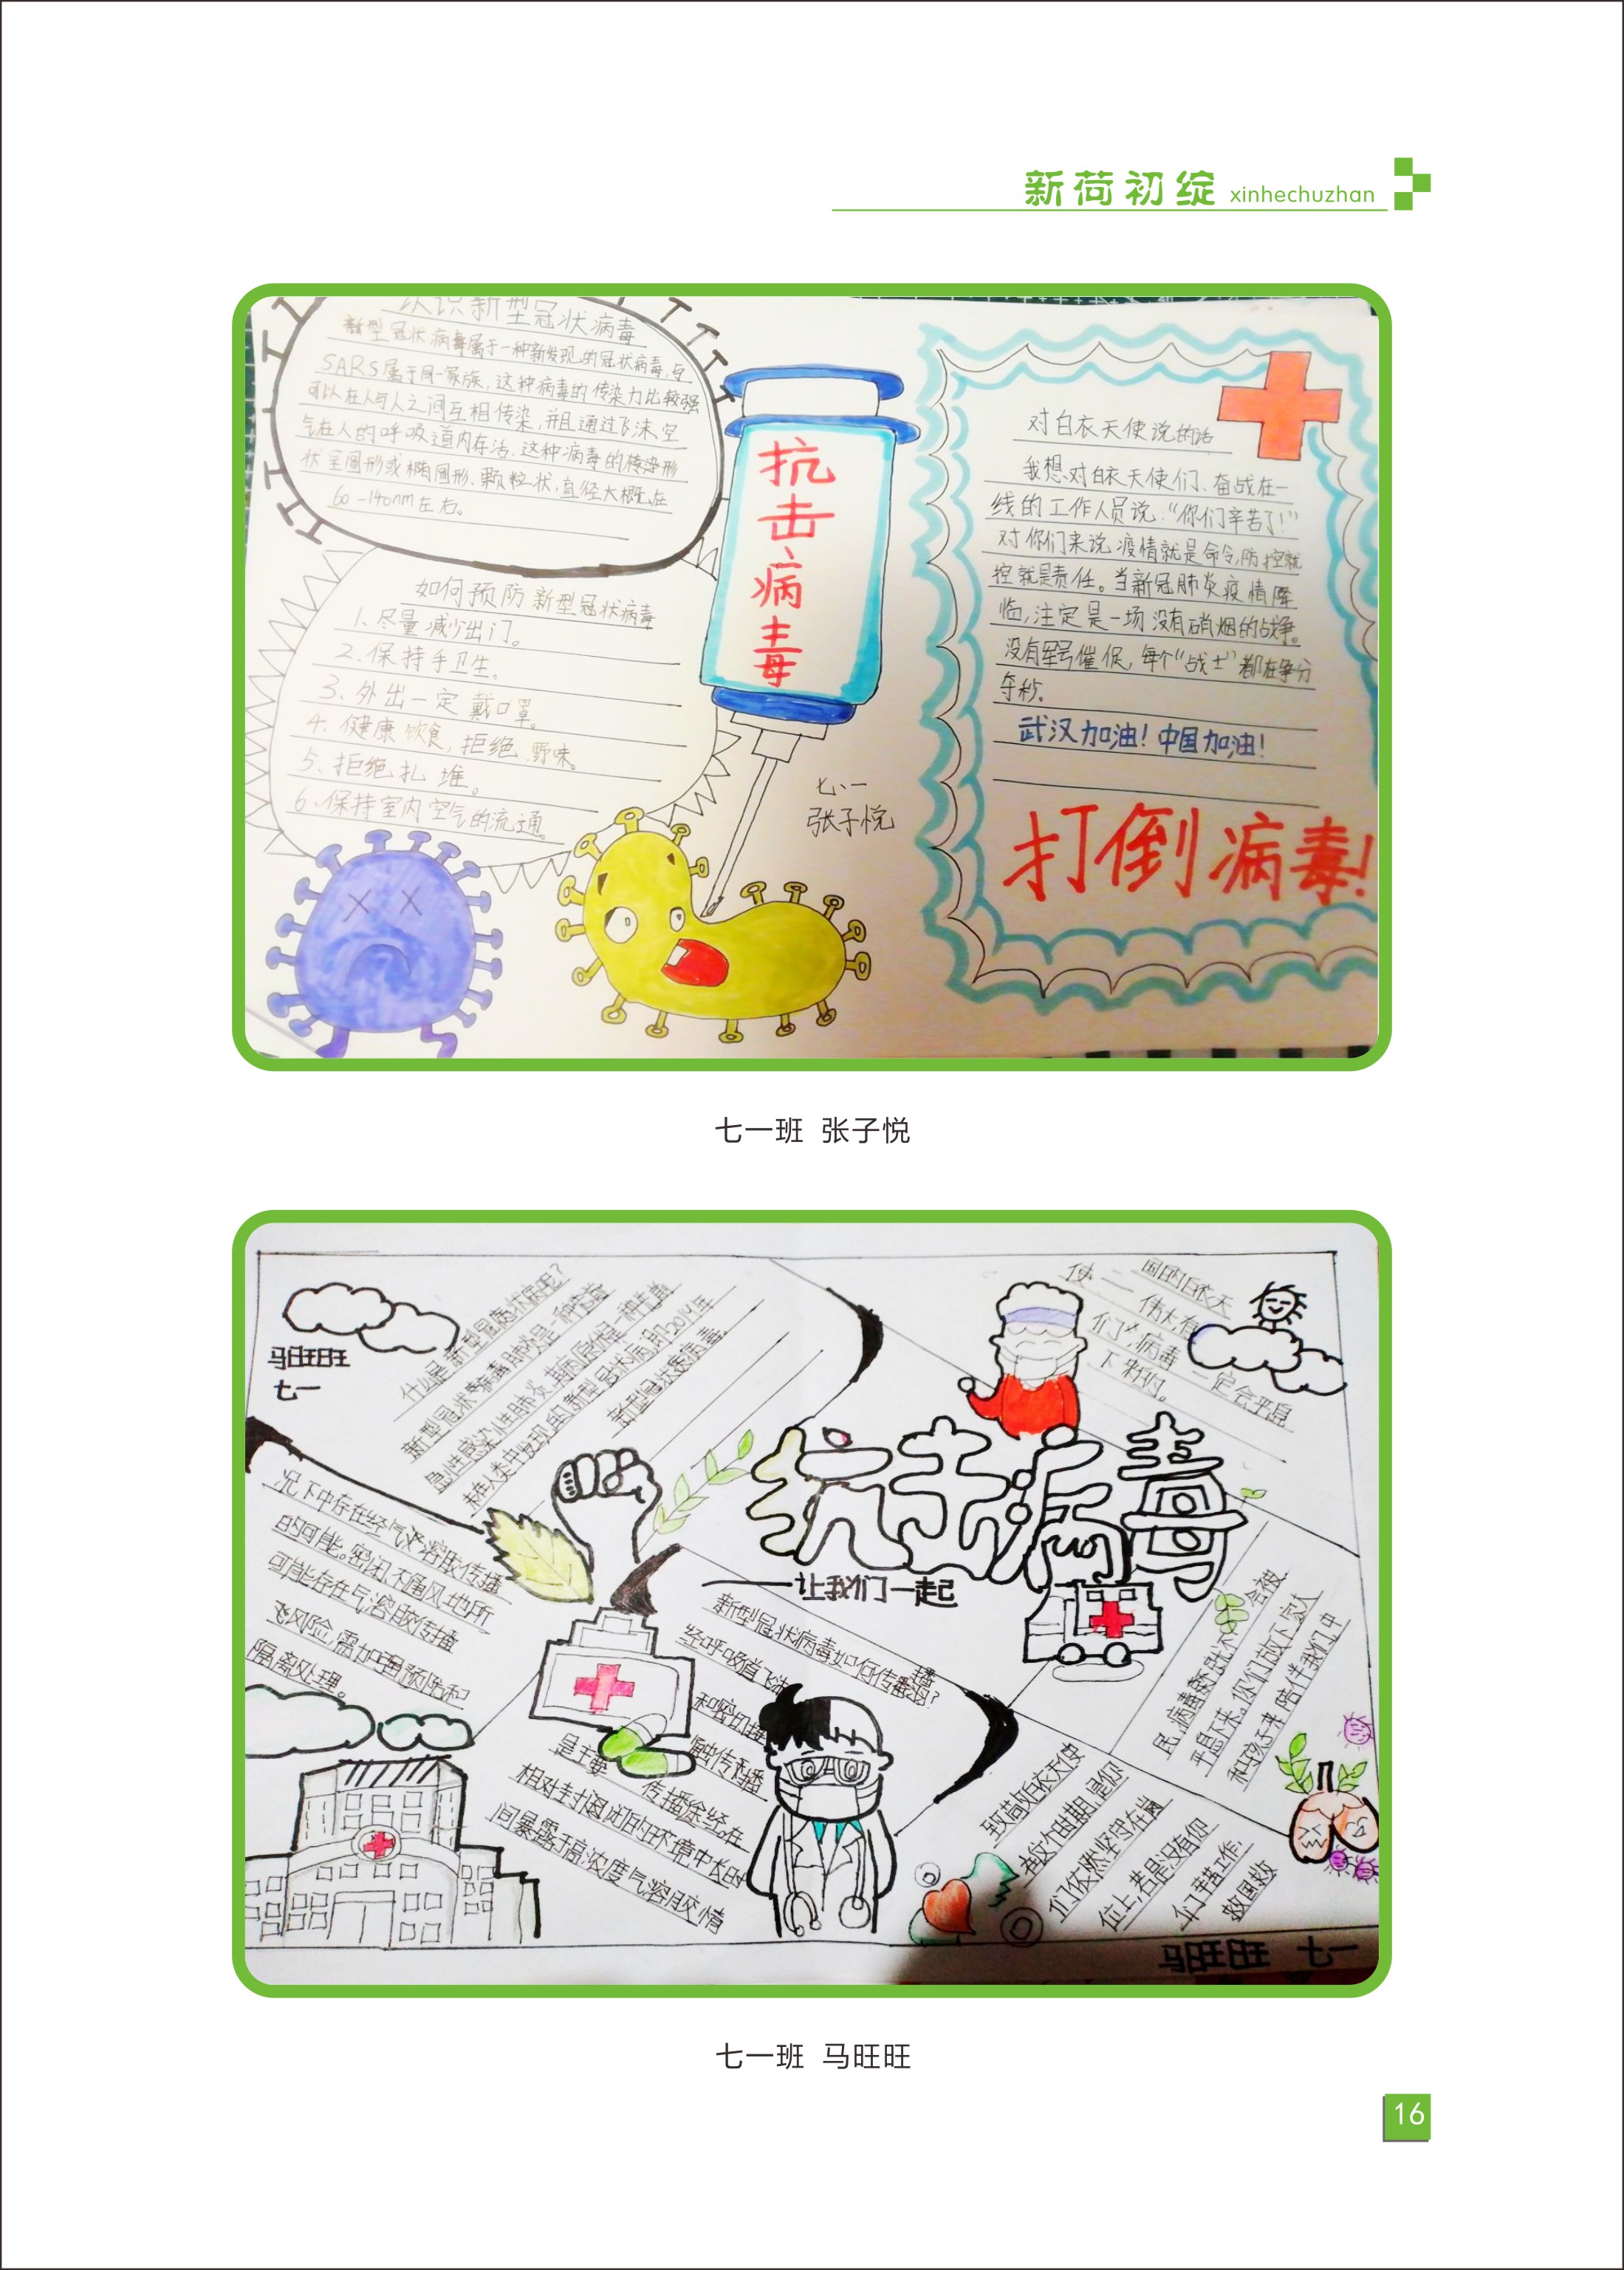 新荷初绽 xinhechuzhan
认识新型冠状病毒
新型冠状病毒属于一种新发现的冠状病毒,与
SARS属于同一家族,这种病毒的传染力比较强
可以在人与人之间互相传染,并且通过飞沫空
气在人的呼吸道内存活,这种病毒的传染形
状呈圆形或椭圆形、颗粒状,直径大概在
60-140nm左右。
如何预防新型冠状病毒
1、尽量减少出门。
2、保持手卫生。
3、外出一定戴口罩。
4、健康饮食,拒绝野味。
5、拒绝扎堆。
6、保持室内空气的流通。
抗击病毒
七、一
张子悦
对白衣天使说的话
我想对白衣天使们、奋战在一
线的工作人员说:“你们辛苦了!”
对你们来说疫情就是命令,防控就
控就是责任。当新冠肺炎疫情降
临,注定是一场没有硝烟的战争。
没有军号催促,每个“战士”都在争分
夺秒。
武汉加油!中国加油!
打倒病毒!
七一班 张子悦
马旺旺
七一
什么是新型冠病状病呢?
新型冠状病毒肺炎是一种
未在人类中发现的新型冠状病
新型冠状病毒
况下中存在经气溶胶传播
的可能。密闭、不通风地所
可能存在气溶胶传播
风险,需加强预防和
隔离处理。
国的白衣天
使——伟大,有
们”,病毒一定会平息
下来的。
抗击病毒
——让我们一起
新型冠状病毒如何传播?
经呼吸道飞沫
和密切接
触传播
是主要传播途经。在
相对封闭的环境中长时
间暴露于高浓度气溶胶情
民,病毒就不会被
平息下来。你们放下家人
和孩子来陪伴我们,中
致敬白衣天使
在这个时期,是你
们依然坚守在岗
位上,若是没有你
们辛苦工作,
救国救
马旺旺 七一
七一班 马旺旺
16